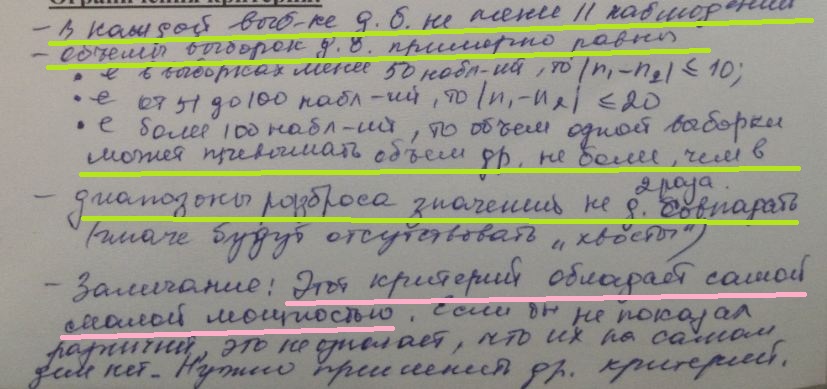 Ограничения критерия:
- В каждой выб-ке д. б. не менее 11 наблюдений
- Объемы выборок д. б. примерно равны
• Е в выборках менее 50 набл-ий, то |n₁-n₂| ≤ 10;
• Е от 51 до 100 набл-ий, то |n₁-n₂| ≤ 20
• Е более 100 набл-ий, то объем одной выборки
может превышать объем др. не более, чем в
2 раза.
- Диапазоны разброса значений не д. совпадать
(иначе будут отсутствовать „хвосты")
- Замечание: Этот критерий обладает самой
малой мощностью. Если он не показал
различий, это не означает, что их на самом
деле нет. Нужно применить др. критерий.